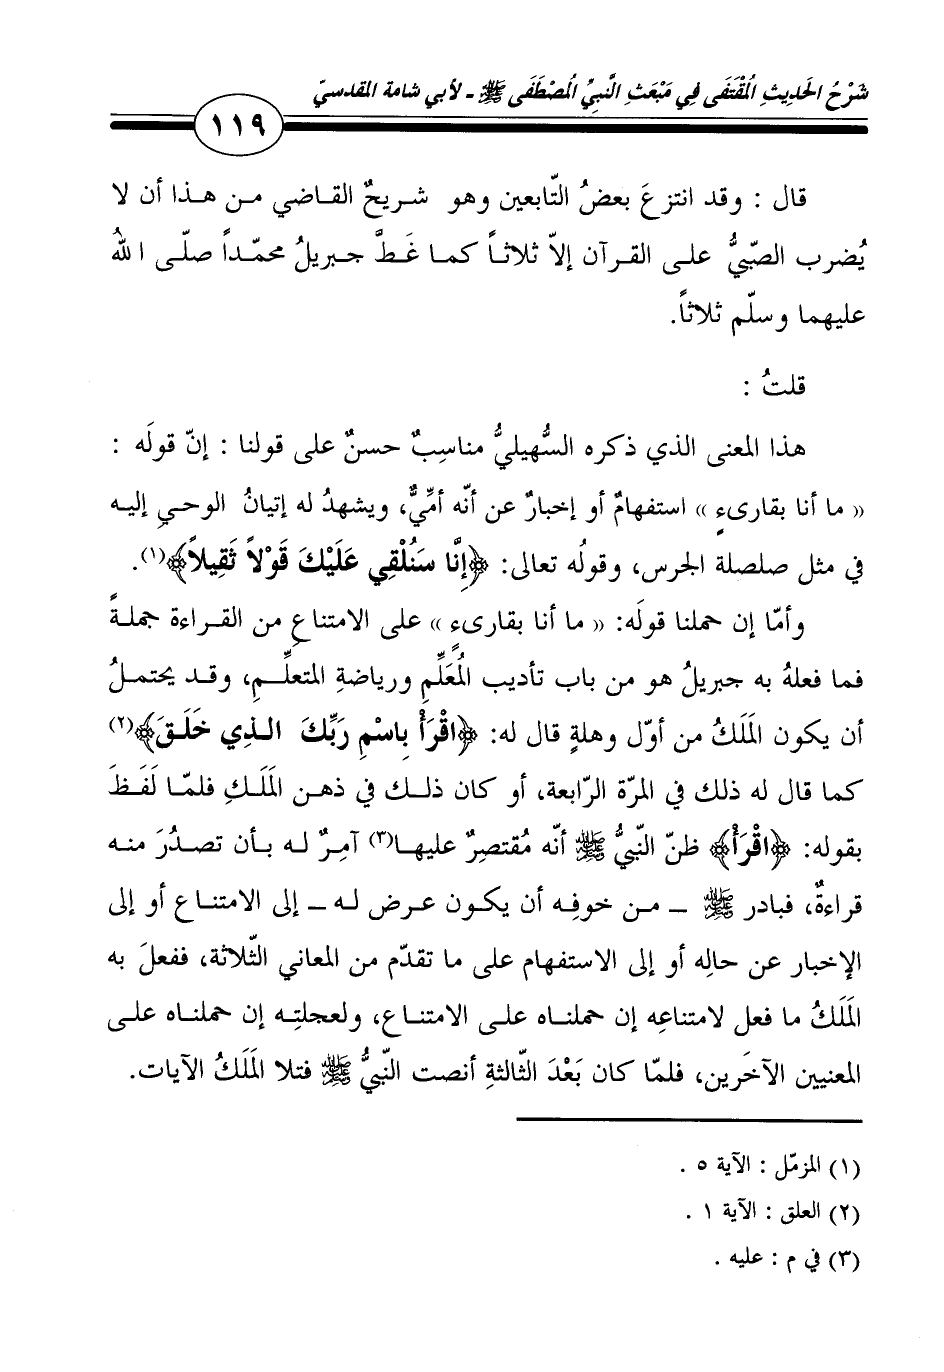 شَرْحُ الحَدِيثِ المُقْتَفَى فِي مَبْعَثِ النَّبِيِّ المُصْطَفَى ﷺ - لأبي شامة المقدسيّ
١١٩
قال : وقد انتزعَ بعضُ التّابعين وهو شريحٌ القاضي من هذا أن لا
يُضرب الصّبيُّ على القرآن إلاّ ثلاثاً كما غَطَّ جبريلُ محمّداً صلّى اللهُ
عليهما وسلّم ثلاثاً.
قلتُ :
هذا المعنى الذي ذكره السُّهيليُّ مناسِبٌ حسنٌ على قولنا : إنّ قولَه :
« ما أنا بقارىءٍ » استفهامٌ أو إخبارٌ عن أنّه أمِّيٌّ، ويشهدُ له إتيانُ الوحيِ إليه
في مثل صلصلة الجرس، وقولُه تعالى: ﴿إِنَّا سَنُلْقِي عَلَيْكَ قَوْلاً ثَقِيلاً﴾(١).
وأمّا إن حملنا قولَه: « ما أنا بقارىءٍ » على الامتناعِ من القراءة جملةً
فما فعلهُ به جبريلُ هو من باب تأديب المُعَلِّمِ ورياضةِ المتعلِّمِ، وقد يحتملُ
أن يكون المَلَكُ من أوّل وهلةٍ قال له: ﴿اقْرَأْ بِاسْمِ رَبِّكَ الذِي خَلَقَ﴾(٢)
كما قال له ذلك في المرّة الرّابعة، أو كان ذلك في ذهن المَلَكِ فلمّا لَفَظَ
بقوله: ﴿اقْرَأْ﴾ ظنّ النّبيُّ ﷺ أنّه مُقتصِرٌ عليها(٣) آمِرٌ له بأن تصدُرَ منه
قراءةٌ، فبادر ﷺ – من خوفِه أن يكون عرض له – إلى الامتناع أو إلى
الإخبار عن حالِه أو إلى الاستفهام على ما تقدّم من المعاني الثّلاثة، ففعلَ به
المَلَكُ ما فعل لامتناعِه إن حملناه على الامتناع، ولعجلتِه إن حملناه على
المعنيين الآخَرين، فلمّا كان بَعْدَ الثّالثةِ أنصت النّبيُّ ﷺ فتلا المَلَكُ الآيات.
(١) المزمّل : الآية ٥ .
(٢) العلق : الآية ١ .
(٣) في م : عليه .